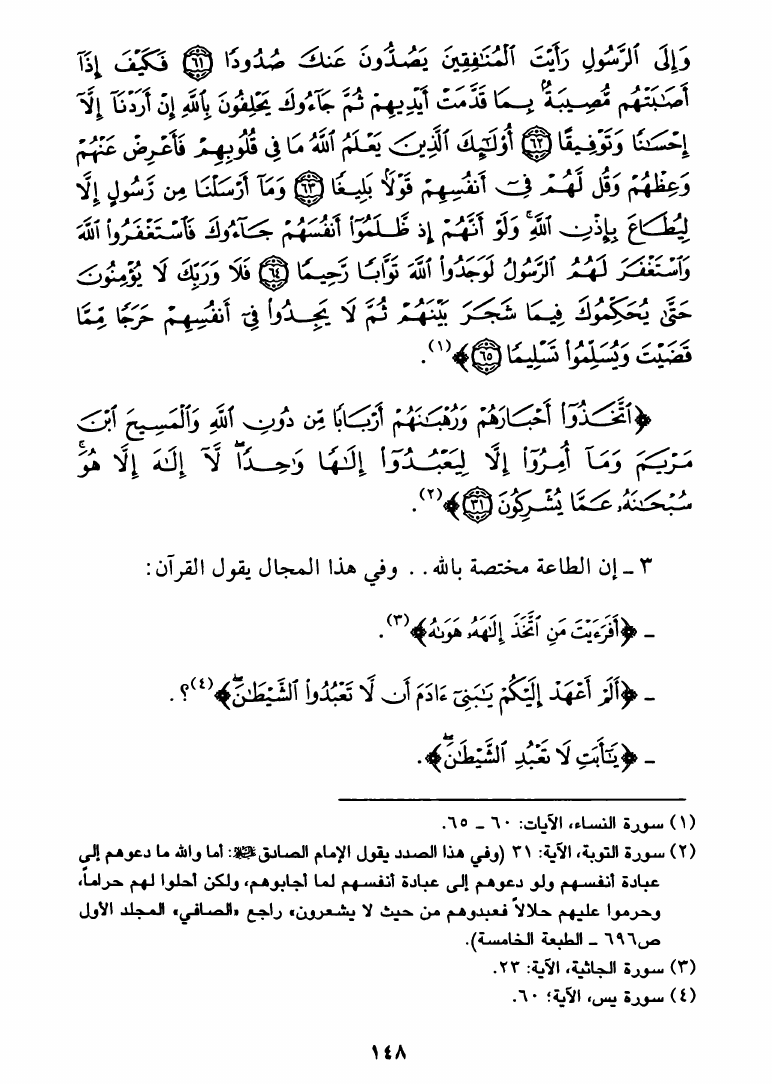 وَإِلَى ٱلرَّسُولِ رَأَيْتَ ٱلْمُنَٰفِقِينَ يَصُدُّونَ عَنكَ صُدُودًا ﴿٦١﴾ فَكَيْفَ إِذَآ
أَصَٰبَتْهُم مُّصِيبَةٌۢ بِمَا قَدَّمَتْ أَيْدِيهِمْ ثُمَّ جَآءُوكَ يَحْلِفُونَ بِٱللَّهِ إِنْ أَرَدْنَآ إِلَّآ
إِحْسَٰنًا وَتَوْفِيقًا ﴿٦٢﴾ أُو۟لَٰٓئِكَ ٱلَّذِينَ يَعْلَمُ ٱللَّهُ مَا فِى قُلُوبِهِمْ فَأَعْرِضْ عَنْهُمْ
وَعِظْهُمْ وَقُل لَّهُمْ فِىٓ أَنفُسِهِمْ قَوْلًۢا بَلِيغًا ﴿٦٣﴾ وَمَآ أَرْسَلْنَا مِن رَّسُولٍ إِلَّا
لِيُطَاعَ بِإِذْنِ ٱللَّهِ ۚ وَلَوْ أَنَّهُمْ إِذ ظَّلَمُوٓا۟ أَنفُسَهُمْ جَآءُوكَ فَٱسْتَغْفَرُوا۟ ٱللَّهَ
وَٱسْتَغْفَرَ لَهُمُ ٱلرَّسُولُ لَوَجَدُوا۟ ٱللَّهَ تَوَّابًا رَّحِيمًا ﴿٦٤﴾ فَلَا وَرَبِّكَ لَا يُؤْمِنُونَ
حَتَّىٰ يُحَكِّمُوكَ فِيمَا شَجَرَ بَيْنَهُمْ ثُمَّ لَا يَجِدُوا۟ فِىٓ أَنفُسِهِمْ حَرَجًا مِّمَّا
قَضَيْتَ وَيُسَلِّمُوا۟ تَسْلِيمًا ﴿٦٥﴾﴾(١).
﴿ٱتَّخَذُوٓا۟ أَحْبَارَهُمْ وَرُهْبَٰنَهُمْ أَرْبَابًا مِّن دُونِ ٱللَّهِ وَٱلْمَسِيحَ ٱبْنَ
مَرْيَمَ وَمَآ أُمِرُوٓا۟ إِلَّا لِيَعْبُدُوٓا۟ إِلَٰهًا وَٰحِدًا ۖ لَّآ إِلَٰهَ إِلَّا هُوَ ۚ
سُبْحَٰنَهُۥ عَمَّا يُشْرِكُونَ ﴿٣١﴾﴾(٢).
٣ - إن الطاعة مختصة بالله.. وفي هذا المجال يقول القرآن:
- ﴿أَفَرَءَيْتَ مَنِ ٱتَّخَذَ إِلَٰهَهُۥ هَوَىٰهُ﴾(٣).
- ﴿أَلَمْ أَعْهَدْ إِلَيْكُمْ يَٰبَنِىٓ ءَادَمَ أَن لَّا تَعْبُدُوا۟ ٱلشَّيْطَٰنَ ۖ﴾(٤)؟.
- ﴿يَٰٓأَبَتِ لَا تَعْبُدِ ٱلشَّيْطَٰنَ ۖ﴾.
(١) سورة النساء، الآيات: ٦٠ - ٦٥.
(٢) سورة التوبة، الآية: ٣١ (وفي هذا الصدد يقول الإمام الصادق: أما والله ما دعوهم إلى
عبادة أنفسهم ولو دعوهم إلى عبادة أنفسهم لما أجابوهم، ولكن أحلوا لهم حراماً،
وحرموا عليهم حلالاً فعبدوهم من حيث لا يشعرون، راجع «الصافي» المجلد الأول
ص٦٩٦ - الطبعة الخامسة).
(٣) سورة الجاثية، الآية: ٢٣.
(٤) سورة يس، الآية؛ ٦٠.
١٤٨